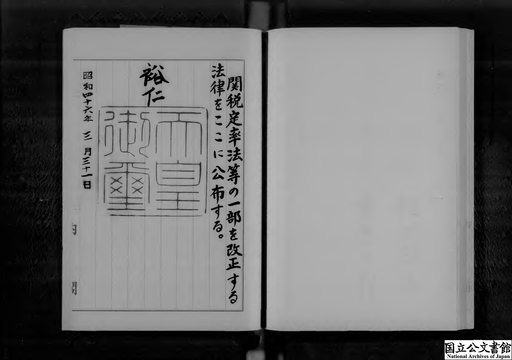 関税定率法等の一部を改正する
法律をここに公布する。
裕仁
天皇
御璽
昭和四十六年 三月三十一日
国立公文書館
National Archives of Japan